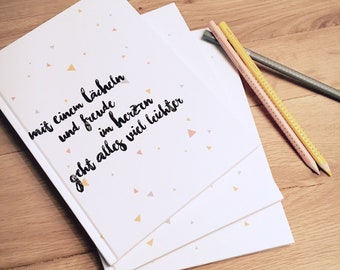 mit einem lächeln
und freude
im herzen
geht alles viel leichter